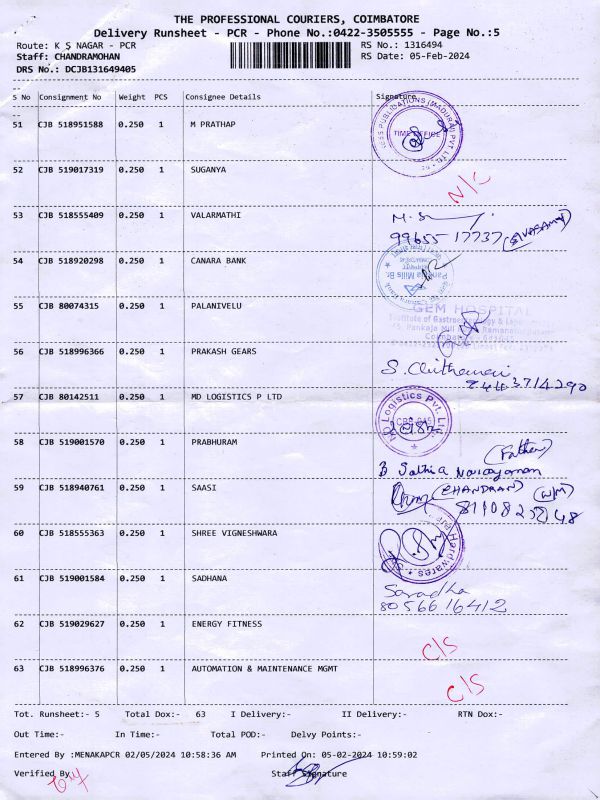 THE PROFESSIONAL COURIERS, COIMBATORE
Delivery Runsheet - PCR - Phone No.:0422-3505555 - Page No.:5
Route: K S NAGAR - PCR
RS No.: 1316494
Staff: CHANDRAMOHAN
RS Date: 05-Feb-2024
DRS No.: DCJB131649405
S No Consignment No Weight PCS Consignee Details Signature
51 CJB 518951588 0.250 1 M PRATHAP
PUBLICATIONS (MADURAI) PVT. LTD.
TIME OFFICE
52 CJB 519017319 0.250 1 SUGANYA
N/C
53 CJB 518555409 0.250 1 VALARMATHI
99655 17737 (SIVASAMY)
54 CJB 518920298 0.250 1 CANARA BANK
Mills Br.
55 CJB 80074315 0.250 1 PALANIVELU
GEM HOSPITAL
Institute of Gastroenterology &
Pankaja Mill
56 CJB 518996366 0.250 1 PRAKASH GEARS
S.
57 CJB 80142511 0.250 1 MD LOGISTICS P LTD
MD Logistics Pvt. Ltd.
58 CJB 519001570 0.250 1 PRABHURAM
(Father)
B Sathia Narayanan
59 CJB 518940761 0.250 1 SAASI
(CHANDRAN) (W/M)
60 CJB 518555363 0.250 1 SHREE VIGNESHWARA
Hardwares
61 CJB 519001584 0.250 1 SADHANA
Saradha
8056616412
62 CJB 519029627 0.250 1 ENERGY FITNESS
C/S
63 CJB 518996376 0.250 1 AUTOMATION & MAINTENANCE MGMT
C/S
Tot. Runsheet:- 5 Total Dox:- 63 I Delivery:- II Delivery:- RTN Dox:-
Out Time:- In Time:- Total POD:- Delvy Points:-
Entered By :MENAKAPCR 02/05/2024 10:58:36 AM Printed On: 05-02-2024 10:59:02
Verified By Staff Signature